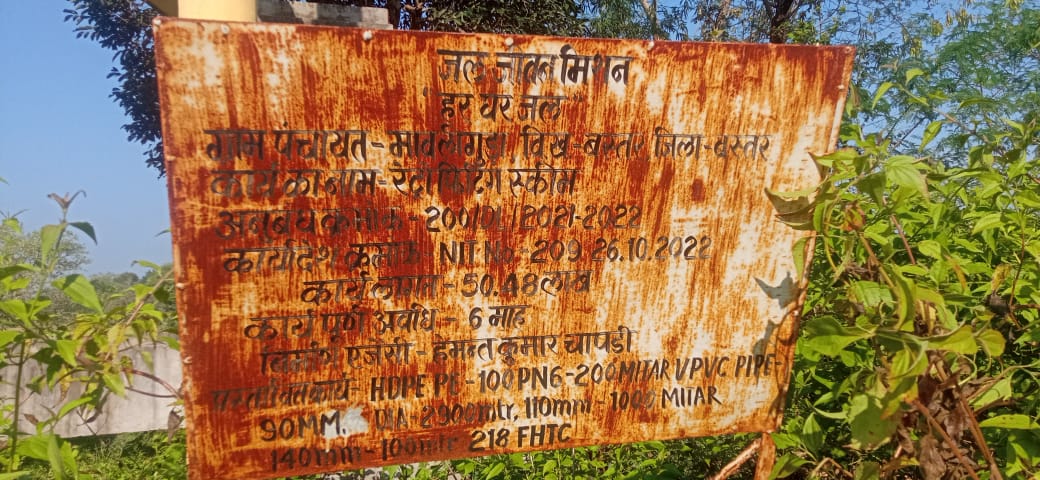 जल जीवन मिशन
"हर घर जल"
ग्राम पंचायत - मावलीगुड़ा विख - बस्तर जिला - बस्तर
कार्य का नाम - रेट्रो फिटिंग स्कीम
अनुबंध क्रमांक - 200/01/2021-2022
कार्यादेश क्रमांक NIT No. 209, 26.10.2022
कार्य लागत - 50.48 लाख
कार्य पूर्ण अवधि - 6 माह
निर्माण एजेंसी - हेमन्त कुमार चापड़ी
प्रस्तावित कार्य - HDPE PE - 100 PN6 - 200 MITAR UPVC PIPE -
90MM. DIA 2900mtr, 110mm - 1000 MITAR
140mm - 100mtr 218 FHTC